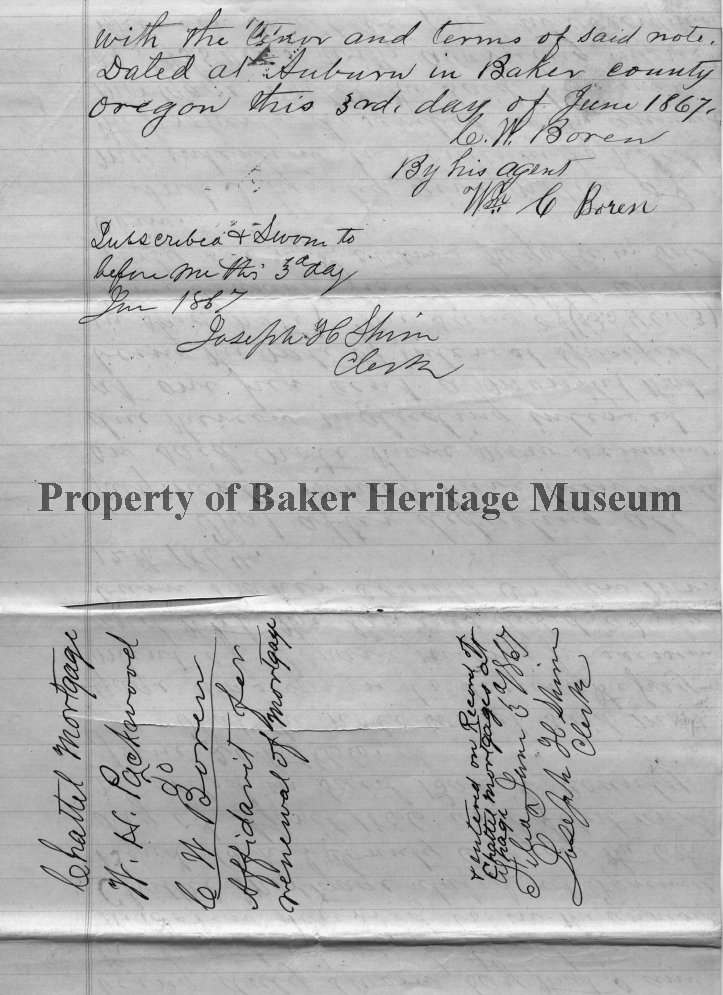 with the tenor and terms of said note.
Dated at Auburn in Baker county
oregon this 3rd. day of June 1867.
C. W. Boren
By his agent
Wm C Boren
Subscribed & Sworn to
before me this 3d day
June 1867
Joseph H Shinn
Clerk
Property of Baker Heritage Museum
Chattel Mortgage
W. H. Packwood
to
C W Boren
Affidavit for
renewal of mortgage
& entered on Record of
Chattel mortgages at
page
Filed June 3 1867
Joseph H Shinn
Clerk